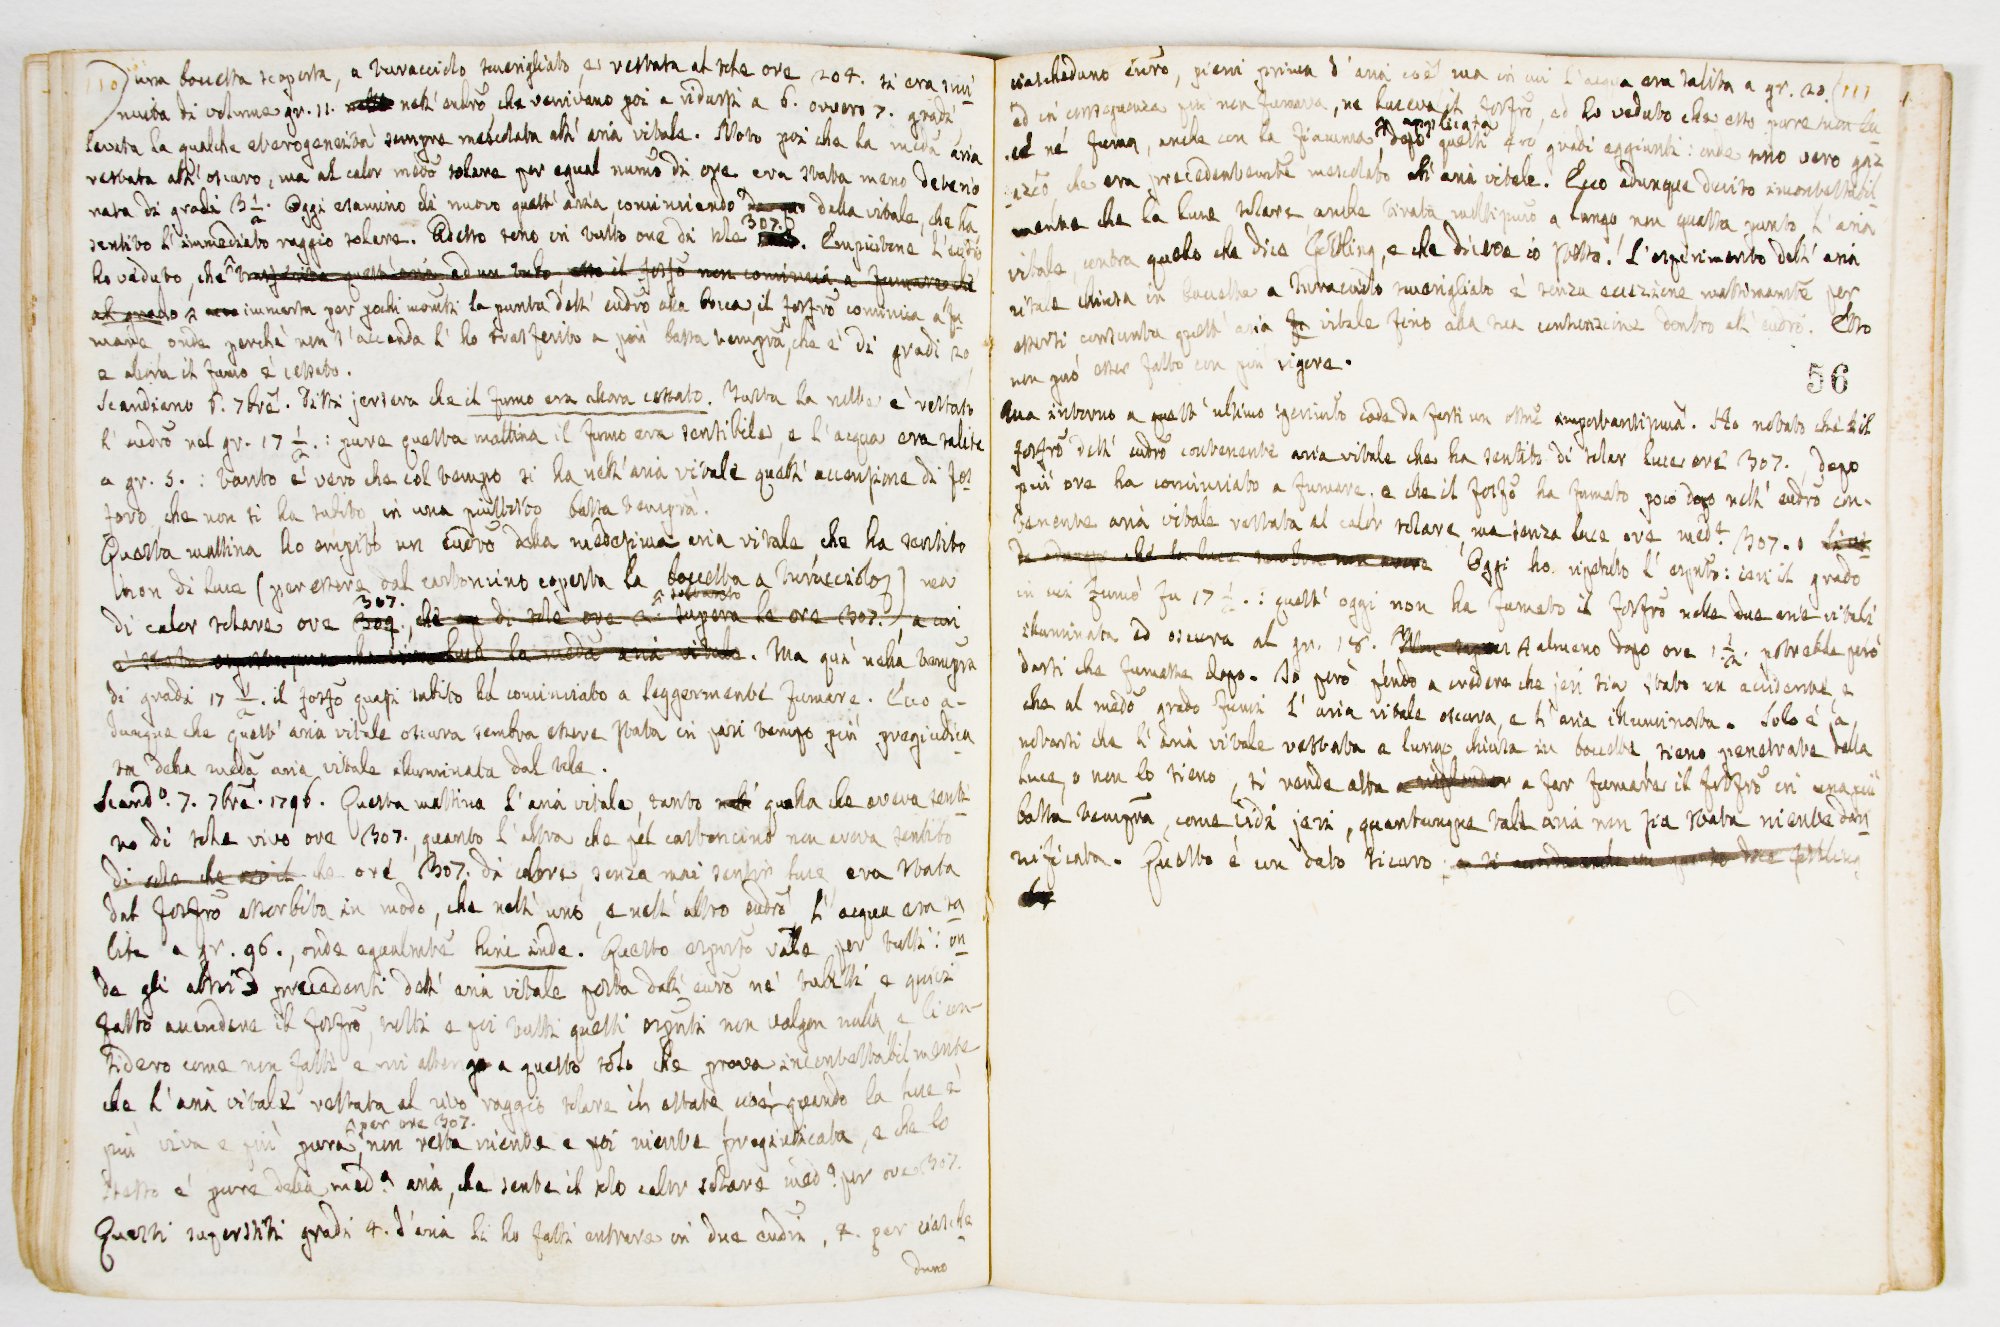 110) una boccetta scoperta, a turacciolo smerigliato, e restata al sole ore 204. si era smi
nuita di volume gr. 11. nell' eudrõ, che venivano poi a ridursi a 6. ovvero 7. gradi
levata la qualche eterogeneità sempre mescolata all' aria vitale. Noto poi che la medã aria
restata all' oscuro, ma al calor medõ solare per egual numõ di ore era stata meno deterio
rata di gradi 3 1/2. Oggi esamino di nuovo quest' aria, cominciando dalla vitale, che ha
sentito l' immediato raggio solare. Adesso sono in tutto ore di sole 307. Empiutone l' eudrõ
ho veduto, che trasferita quest' aria ad un tubo, esso il fosfrõ non comincia a fumare che
al grado immersa per pochi moñti la punta dell' eudrõ alla bocca, il fosfrõ comincia a fu
mare onde perchè non s' accenda l' ho trasferito a più bassa temprã, che è di gradi 20,
e allora il fumo è cessato.
Scandiano 6. 7brẽ. Dissi jersera che il fumo era allora cessato. Tutta la notte è restato
l' eudrõ nel gr. 17 1/2.: pure questa mattina il fumo era sensibile, e l' acqua era salita
a gr. 5.: tanto è vero che col tempo si ha nell' aria vitale quest' accensione di fos
foro, che non si ha subito in una piuttosto bassa temprã.
Questa mattina ho empito un eudrõ della medesima aria vitale, che ha sentito
non di luce (per essere dal cartoncino coperta la boccetta a turacciolo) ma
di calor solare ore 307. che di sole ore soltanto supera le ore 307. a cui
è stata la medã aria vitale. Ma quì nella temprã
di gradi 17 1/2. il fosfrõ quasi subito ha cominciato a leggermente fumare. Ecco a-
dunque che quest' aria vitale oscura sembra essere stata in pari tempo più pregiudica
ta della medã aria vitale illuminata dal sole.
Scandº. 7. 7brẽ. 1796. Questa mattina l' aria vitale, tanto quella che aveva senti
to di sole vivo ore 307., quanto l' altra che pel cartoncino non aveva sentito
di sole che che ore 307. di calore senza mai sentir luce era stata
dal fosfrõ assorbita in modo, che nell' uno, e nell' altro eudrõ l' acqua era sa
lita a gr. 96., onde egualmtẽ hinc inde. Questo esprtõ vale per tutti: on
de gli altri 3 precedenti dell' aria vitale posta dall' eudrõ ne' tubetti e quivi
fatto accendere il fosfrõ, tutti e poi tutti questi esprti non valgon nulla, e li con-
sidero come non fatti e mi attengo a questo solo che prova incontestabilmente
che l' aria vitale restata al vivo raggio solare in estate, cioè quando la luce è
più viva e più pura, per ore 307. non resta niente e poi niente pregiudicata, e che lo
stesso è pure della medª aria, che sente il solo calor solare medº per ore 307.
Questi superstiti gradi 4. d' aria li ho fatti entrare in due eudri, 4. per ciasche
duno
ciascheduno eudrõ, pieni prima d' aria coẽ ma in cui l' acqua era salita a gr. 20. (111
ed in conseguenza più non fumava, ne luceva il fosfrõ, ed ho veduto che esso pure non lu
ce nè fuma, anche con la fiamma applicata dopo questi 4 gradi aggiunti: onde sono vero gaz
azõ che era precedentemtẽ mescolato all' aria vitale. Ecco adunque deciso incontestabil
mente che la luce solare anche tirata moltissimo a lungo non guasta punto l' aria
vitale, contra quelo che dice Göttling, e che diceva io stesso. L' esperimento dell' aria
vitale chiusa in boccette a turacciolo smerigliato è senza eccezione massimamtẽ per
essersi consunta quest' aria vitale fino alla sua consunzione dentro all' eudrõ. Esso
non può esser fatto con più rigore.
56
Ma intorno a quest' ultimo sperimtõ cade da farsi un ossnẽ importantissima. Ho notato che il
fosfrõ dell' eudrõ contenente aria vitale che ha sentito di solar luce ore 307., dopo
più ore ha cominciato a fumare, e che il fosfrõ ha fumato poco dopo nell' eudrõ con-
tenente aria vitale restata al calor solare, ma senza luce ore medª 307.
Oggi ho ripetuto l' esprtõ: ieri il grado
in cui fumò fu 17 1/2.: quest' oggi non ha fumato il fosfrõ nelle due arie vitali
illuminata ed oscura al gr. 18. almeno dopo ore 1 1/2. potrebbe però
darsi che fumasse dopo. Io però pendo a credere che jeri sia stato un accidente, e
che al medõ grado fumi l' aria vitale oscura, e l' aria illuminata. Solo è da
notarsi che l' aria vitale restata a lungo chiusa in boccette, sieno penetrate dalla
luce, o non lo sieno, si rende atta a far fumare il fosfrõ in una più
bassa temprã, come vidi jeri, quantunque tale aria non sia stata niente dan
nificata. Questo è un dato sicuro